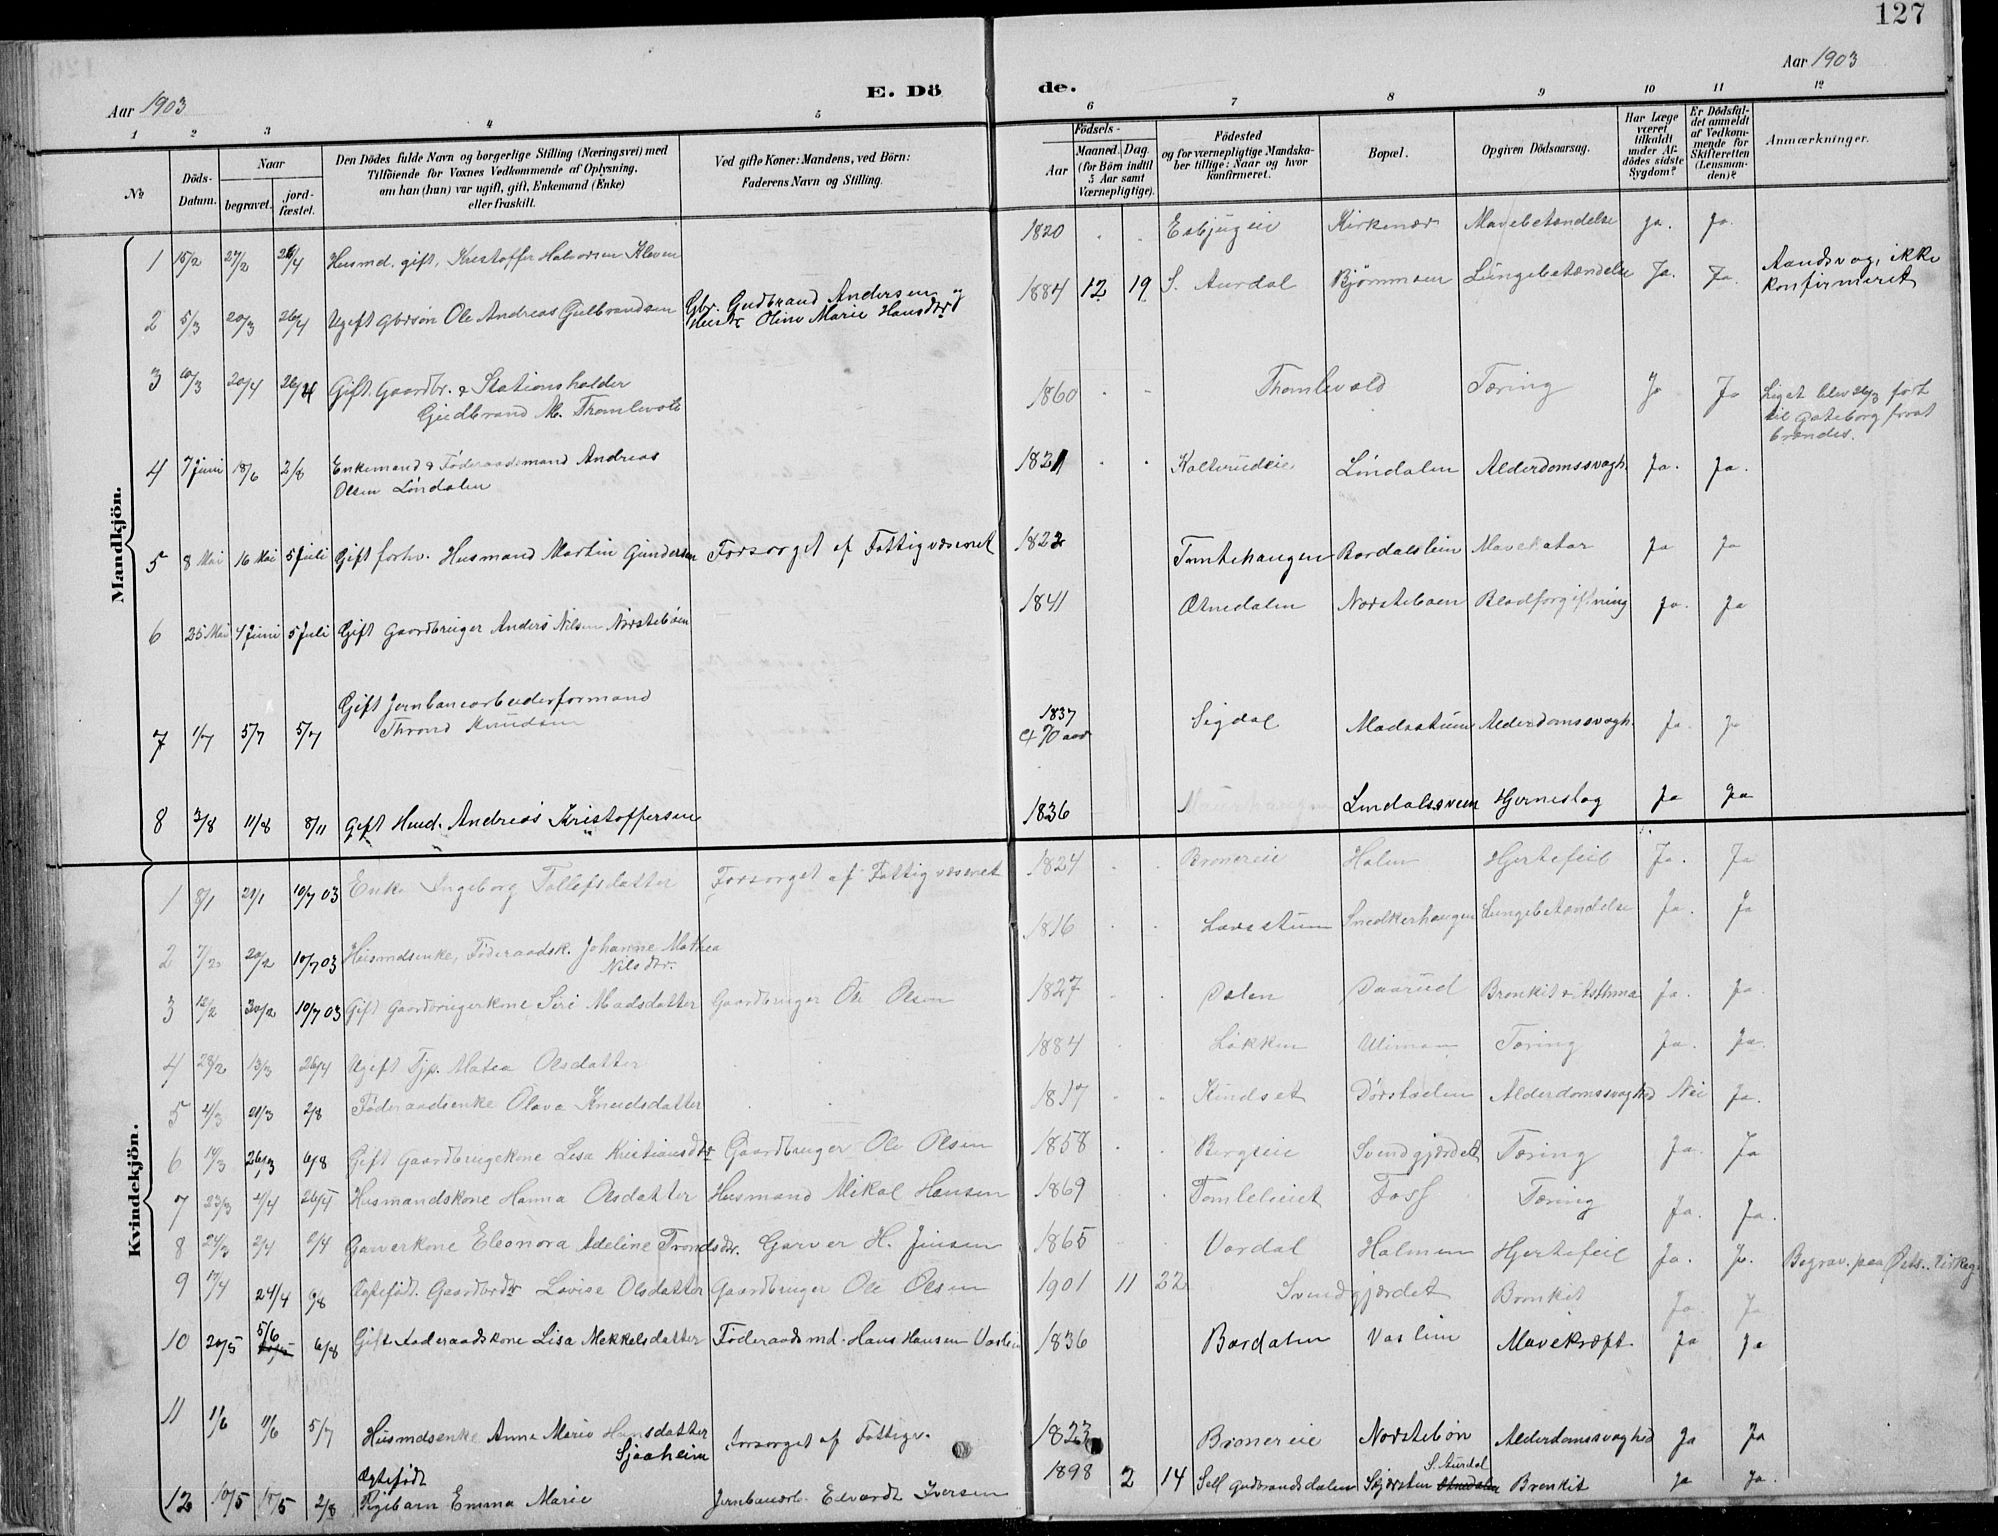 127
Aar 1903
E. Dö
de.
Aar 1903
1 2 3 4 5 6 7 8 9 10 11 12
No
Döds-
Datum.
Naar
begravet.
jord-
fæstet.
Den Dödes fulde Navn og borgerlige Stilling (Næringsvei) med
Tilföiende for Voxnes Vedkommende af Oplysning,
om han (hun) var ugift, gift, Enkemand (Enke)
eller fraskilt.
Ved gifte Koner: Mandens, ved Börn:
Faderens Navn og Stilling.
Födsels-
Aar
Maaned. Dag.
(for Börn indtil
5 Aar samt
Værnepligtige).
Födested
og for værnepligtige Mandska-
ber tillige: Naar og hvor
konfirmeret.
Bopæl.
Opgiven Dödsaarsag.
Har Læge
været
tilkaldt
under Af-
dödes sidste
Sygdom?
Er Dödsfal-
det anmeldt
af Vedkom-
mende for
Skifteretten
(Lensman-
den)?
Anmærkninger.
Mandkjön.
1 15/2 27/2 26/4 Husmd. gift, Kristoffer Halvorsen Kleven 1820 Kirkenær Mavebetændelse Ja. Ja.
2 5/3 20/3 26/4 Ugift Gbrsøn Ole Andreas Gulbrandsen Gbr. Gudbrand Andersen og
Hustr Oline Marie Hansdtr 1884 12 19 S. Aurdal Bjørnmoen Lungebetændelse Ja. Ja. Aandsvag, ikke
konfirmeret
3 10/3 20/4 26/4 Gift Gaardbr. & Stationsholder
Gudbrand M. Thomlevold 1860 Thomlevold Tæring Ja Ja Liget blev 26/3 ført
til Gøteborg forat
brændes.
4 7 Juni 18/6 2/8 Enkemand & Føderaadsmand Andreas
Olsen Lindalen 1821 Lindalen Alderdomssvagh. Ja. Ja.
5 8 Mai 16 Mai 5 Juli Gift forhv. Husmand Martin Gundersen Forsørget af Fattigvæsenet 1822 Tomtehaugen Mavekatar Ja Ja
6 25 Mai 4 Juni 5 Juli Gift Gaardbruger Anders Nilsen Nørstebøen 1841 Etnedalen Nørstebøen Blodforgiftning Ja. Ja
7 1/7 5/7 5/7 Gift Jernbanearbeiderformand
Thrond Knudsen 1837
70 aar Sigdal Madsstuen Alderdomssvagh Ja. Ja
8 3/8 11/8 8/11 Gift Husd. Andreas Kristoffersen 1836 Lindalssveen Hjerneslag Ja Ja
Kvindekjön.
1 8/1 21/1 10/7 03 Enke Ingeborg Tollefsdatter Forsørget af Fattigvæsenet 1824 Bronereie Holen Hjertefeil Ja. Ja
2 7/2 20/2 10/7 03 Husmdsenke, Føderaadsk. Johanne Mathea
Nilsdtr. 1816 Larsstuen Snedkerhaugen Lungebetændelse Ja. Ja
3 12/2 20/2 10/7 03 Gift Gaardbrugerkone Siri Madsdatter Gaardbruger Ole Olsen 1827 Dalen Bronkit & Asthma Ja. Ja.
4 28/2 13/3 26/4 Ugift Tjp. Matea Olsdatter 1884 Løkken Tæring Ja. Ja.
5 4/3 21/3 2/8 Føderaadsenke Olava Knudsdatter 1817 Kindset Alderdomssvaghed Nei Ja.
6 14/3 26/3 6/8 Gift Gaardbrugekone Lisa Kristiansdtr Gaardbruger Ole Olsen 1858 Bergseie Svendgjærdet Tæring Ja. Ja
7 23/3 2/4 26/4 Husmandskone Hanna Olsdatter Husmand Mikal Hansen 1869 Tomleleiet Foss Tæring Ja. Ja.
8 24/3 2/4 2/4 Garverkone Eleonora Adeline Trondsdtr. Garver H. Jensen 1865 Vardal Holmen Hjertefeil Ja. Ja. Begrav. paa Østs. Kirkeg.
9 17/4 24/4 9/8 Ægtefødt. Gaardbrdtr Lovise Olsdatter Gaardbruger Ole Olsen 1901 11 22 Svendgjærdet Bronkit Ja. Ja
10 20/5 5/6 6/8 Gift Føderaadskone Lisa Mekkelsdatter Føderaadsmd. Hans Hansen Vaslien 1836 Bardalen Vaslien Mavekræft Ja Ja
11 1/6 11/6 5/7 Husmdsenke Anne Marie Hansdatter
Sjaaheim Forsørget af Fattigv. 1823 Bronereie Nørstebøn Alderdomssvaghed Ja Ja
12 10/5 17/5 2/8 Ægtefødt
Pigebarn Emma Marie Jernbanearb. Edvardt Iversen 1898 2 14 Sell Gudbrandsdalen S. Aurdal Etnedalen Bronkit Ja Ja.